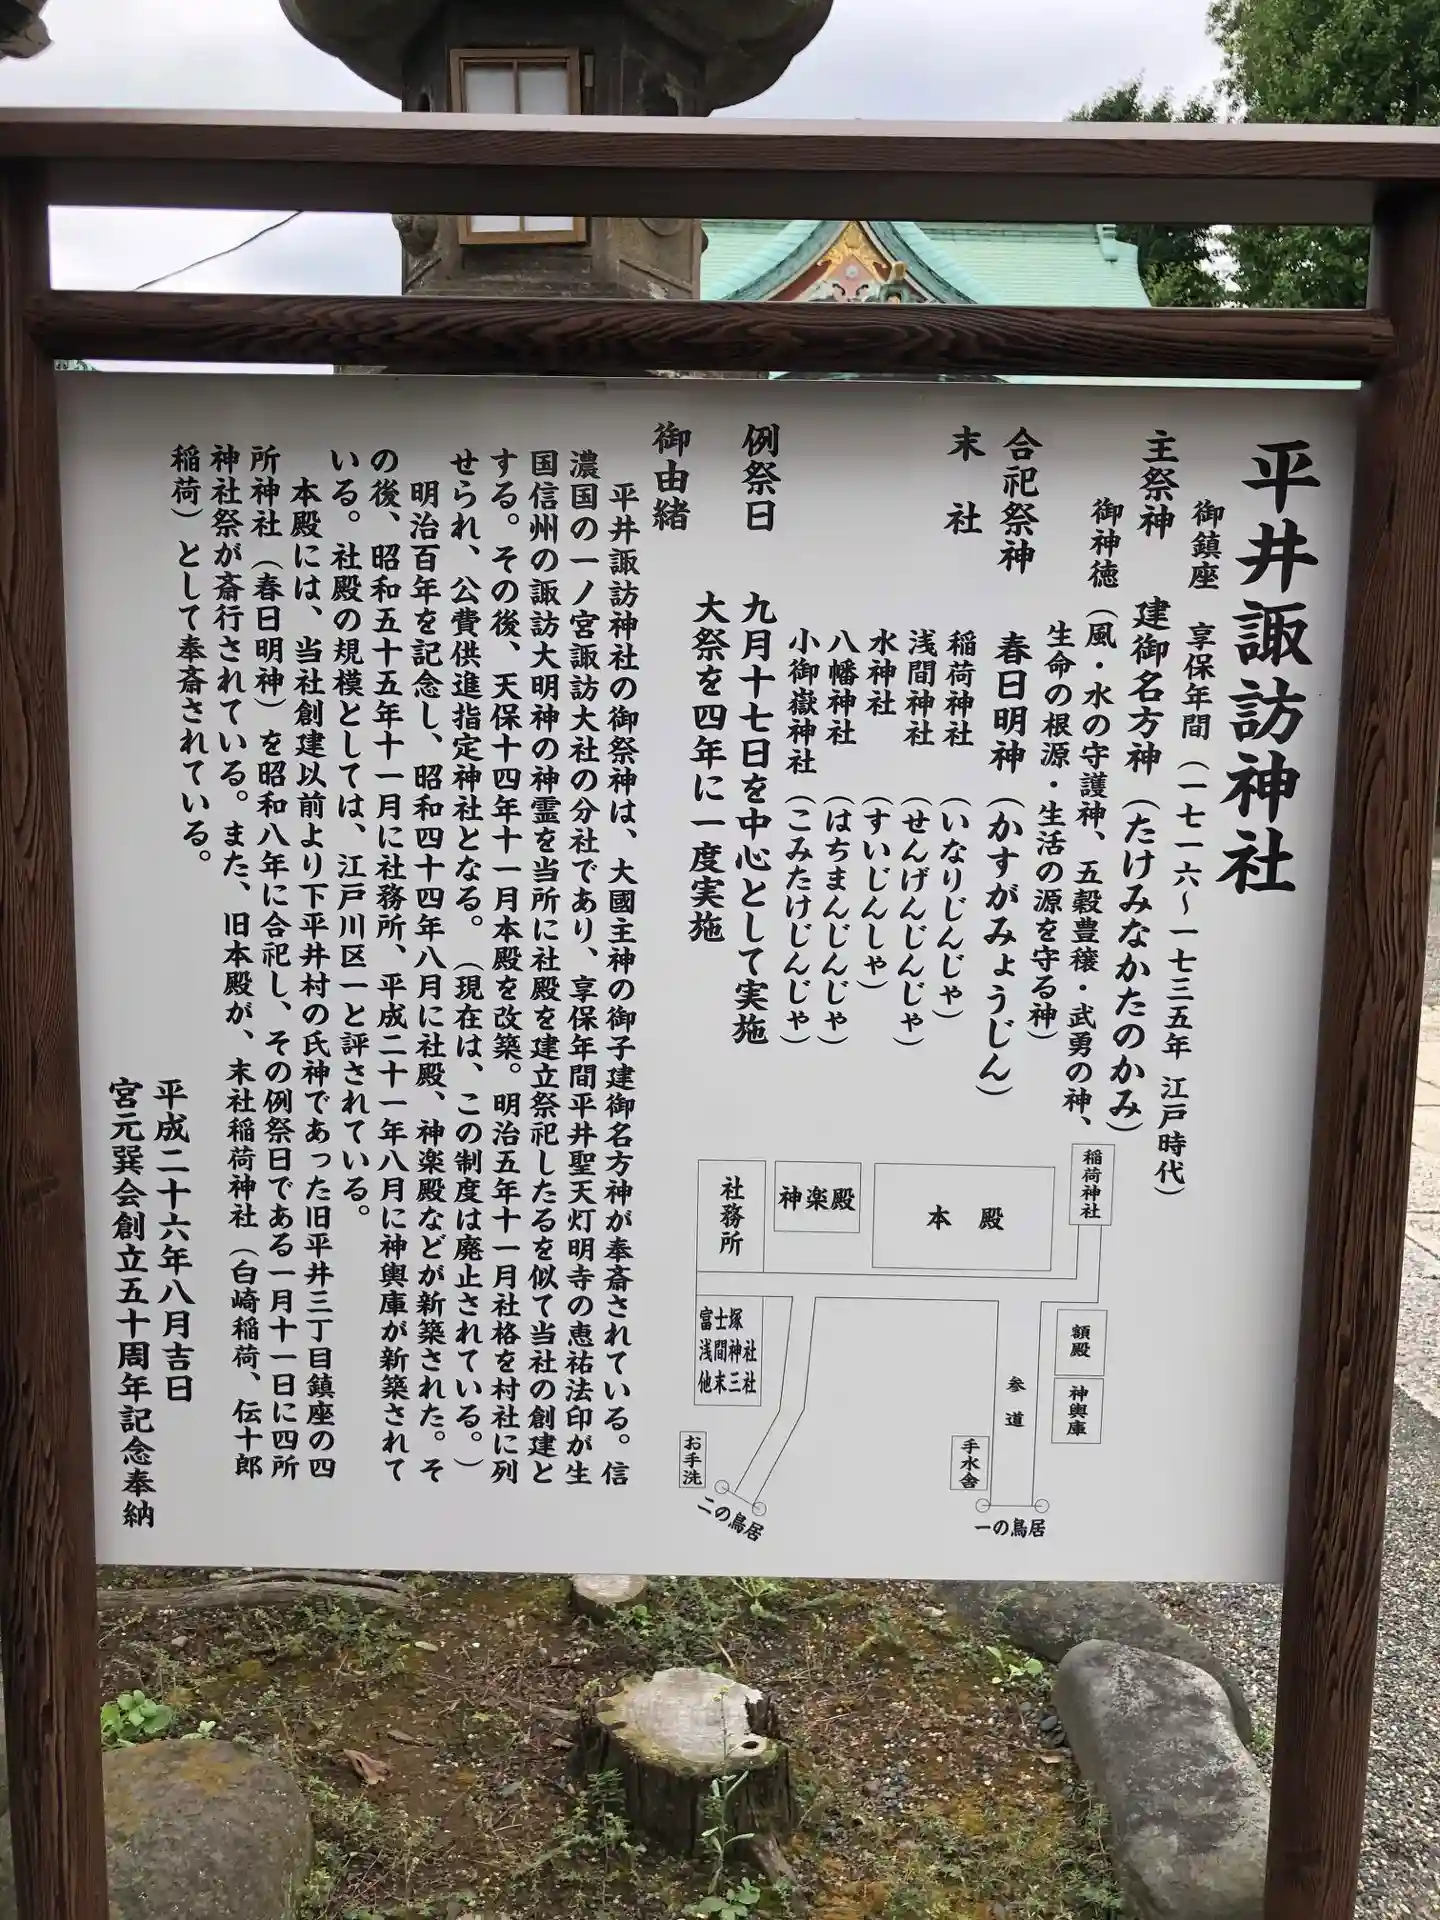 平井諏訪神社
御鎮座　享保年間（一七一六～一七三五年　江戸時代）
主祭神　建御名方神（たけみなかたのかみ）
御神徳（風・水の守護神、五穀豊穣・武勇の神、
生命の根源・生活の源を守る神）
合祀祭神　春日明神（かすがみょうじん）
末　社　稲荷神社（いなりじんじゃ）
浅間神社（せんげんじんじゃ）
水神社（すいじんしゃ）
八幡神社（はちまんじんじゃ）
小御嶽神社（こみたけじんじゃ）
例祭日　九月十七日を中心として実施
大祭を四年に一度実施
御由緒
平井諏訪神社の御祭神は、大國主神の御子建御名方神が奉斎されている。信
濃国の一ノ宮諏訪大社の分社であり、享保年間平井聖天灯明寺の恵祐法印が生
国信州の諏訪大明神の神霊を当所に社殿を建立祭祀したるを似て当社の創建と
する。その後、天保十四年十一月本殿を改築。明治五年十一月社格を村社に列
せられ、公費供進指定神社となる。（現在は、この制度は廃止されている。）
明治百年を記念し、昭和四十四年八月に社殿、神楽殿などが新築された。そ
の後、昭和五十五年十一月に社務所、平成二十一年八月に神輿庫が新築されて
いる。社殿の規模としては、江戸川区一と評されている。
本殿には、当社創建以前より下平井村の氏神であった旧平井三丁目鎮座の四
所神社（春日明神）を昭和八年に合祀し、その例祭日である一月十一日に四所
神社祭が斎行されている。また、旧本殿が、末社稲荷神社（白崎稲荷、伝十郎
稲荷）として奉斎されている。
平成二十六年八月吉日
宮元巽会創立五十周年記念奉納
稲荷神社
本　殿
神楽殿
社務所
額殿
神輿庫
参道
手水舎
一の鳥居
富士塚
浅間神社
他末三社
お手洗
二の鳥居